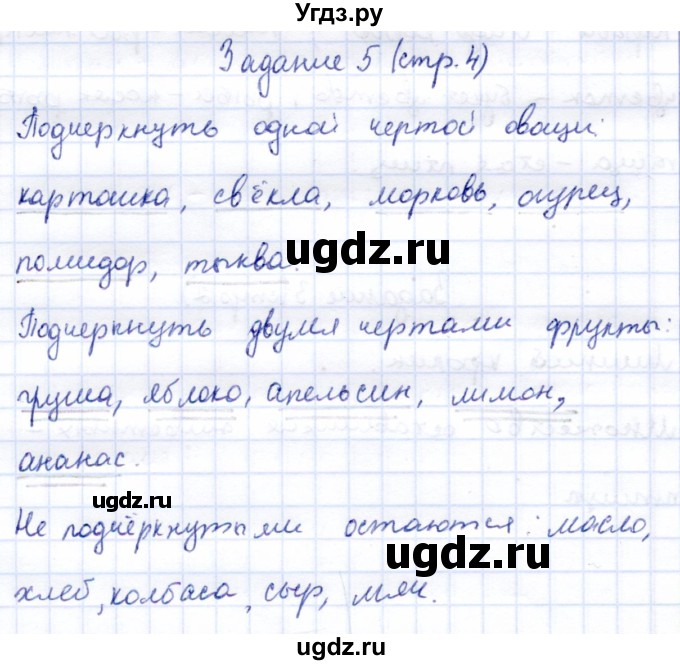 Угдз.ру
Задание 5 (стр. 4)
Подчеркнуть одной чертой овощи:
картошка, свёкла, морковь, огурец,
ugdz.ru
помидор, тыква.
Подчеркнуть двумя чертами фрукты:
груша, яблоко, апельсин, лимон,
ананас.
ugdz.ru
Не подчёркнутыми остаются: масло,
ugdz.ru
хлеб, колбаса, сыр, мяч.
ugdz.ru